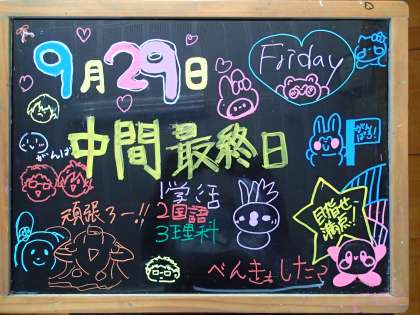 9月29日
Friday
中間最終日
がんば
がんばる!
頑張ろー!!
1学活
2国語
3理科
目指せ
満点!
べんきょした?